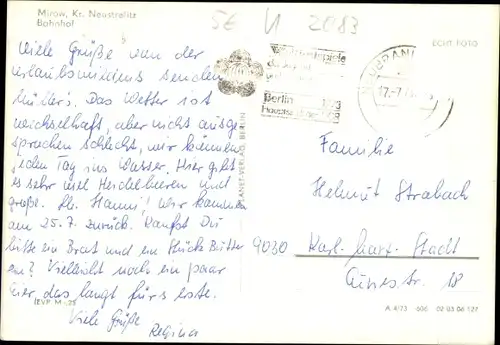 Mirow, Kr. Neustrelitz
Bahnhof
SE U 2083
ECHT FOTO
Viele Grüße von der
Urlaubs senden
Müller's. Das Wetter ist
wechselhaft, aber nicht ausge
sprochen schlecht, wir können
jeden Tag ins Wasser. Hier gibt
es sehr viel Heidelbeeren und
große. Lb. Hanni! Wir kommen
am 25.7. zurück. Kaufst Du
bitte ein Brot und ein Stück Butter
ein? Vielleicht noch ein paar
Eier das langt fürs erste.
Viele Grüße
Regina
(EVP: M -,25
Berlin
17.-7
Familie
Helmut Strabach
9030 Karl-Marx-Stadt
18
A 4/73 606 02 03 06 127